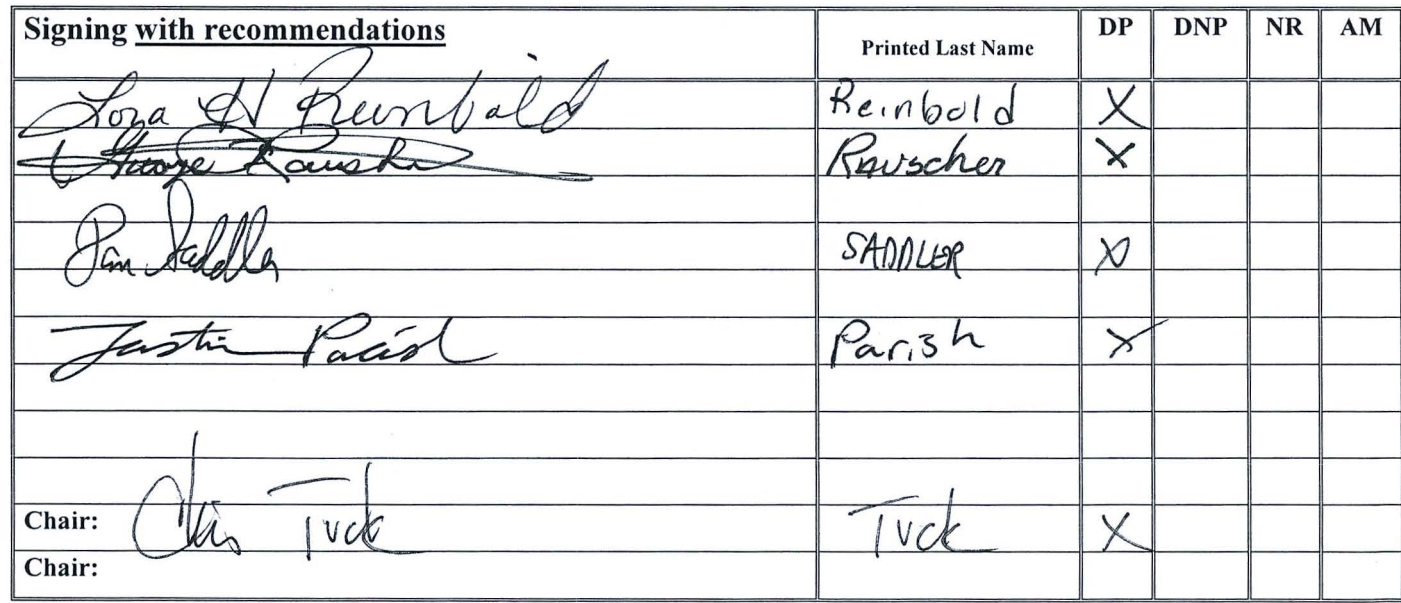 Signing with recommendations Printed Last Name DP DNP NR AM
Lora H Reinbold Reinbold X
George Rauscher Rauscher X
Pam Saddler SADDLER X
Justin Parish Parish X
Chair: Chris Tuck Tuck X
Chair: